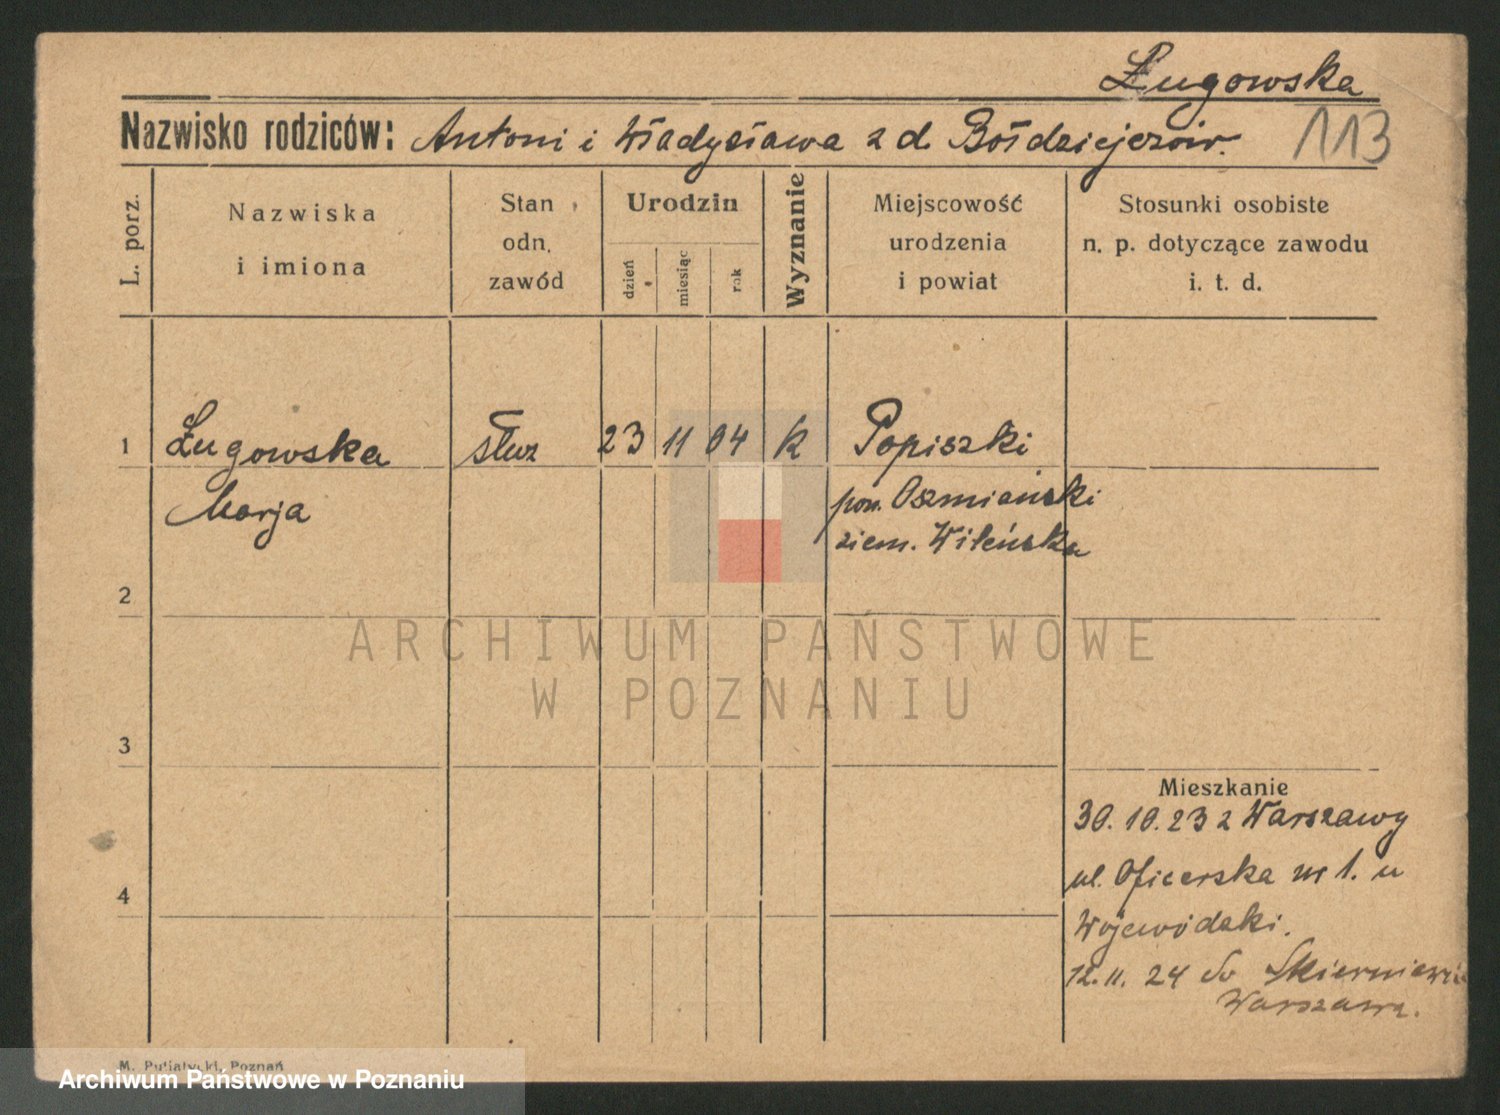 Ługowska
Nazwisko rodziców: Antoni i Władysława z d. Bołdziejezów.
113
L. porz.
Nazwiska
i imiona
Stan
odn.
zawód
Urodzin
dzień
miesiąc
rok
Wyznanie
Miejscowość
urodzenia
i powiat
Stosunki osobiste
n. p. dotyczące zawodu
i. t. d.
1 Ługowska służ 23 11 04 k Popiszki
Marja
pow. Oszmiański
ziem. Wileńska
2
ARCHIWUM PAŃSTWOWE
W POZNANIU
3
Mieszkanie
30.10.23 z Warszawy
ul. Oficerska nr 1. u
4
Wojewódzki.
12.11.24 do Skierniewic
Warszawa.
M. Putiatycki, Poznań
Archiwum Państwowe w Poznaniu